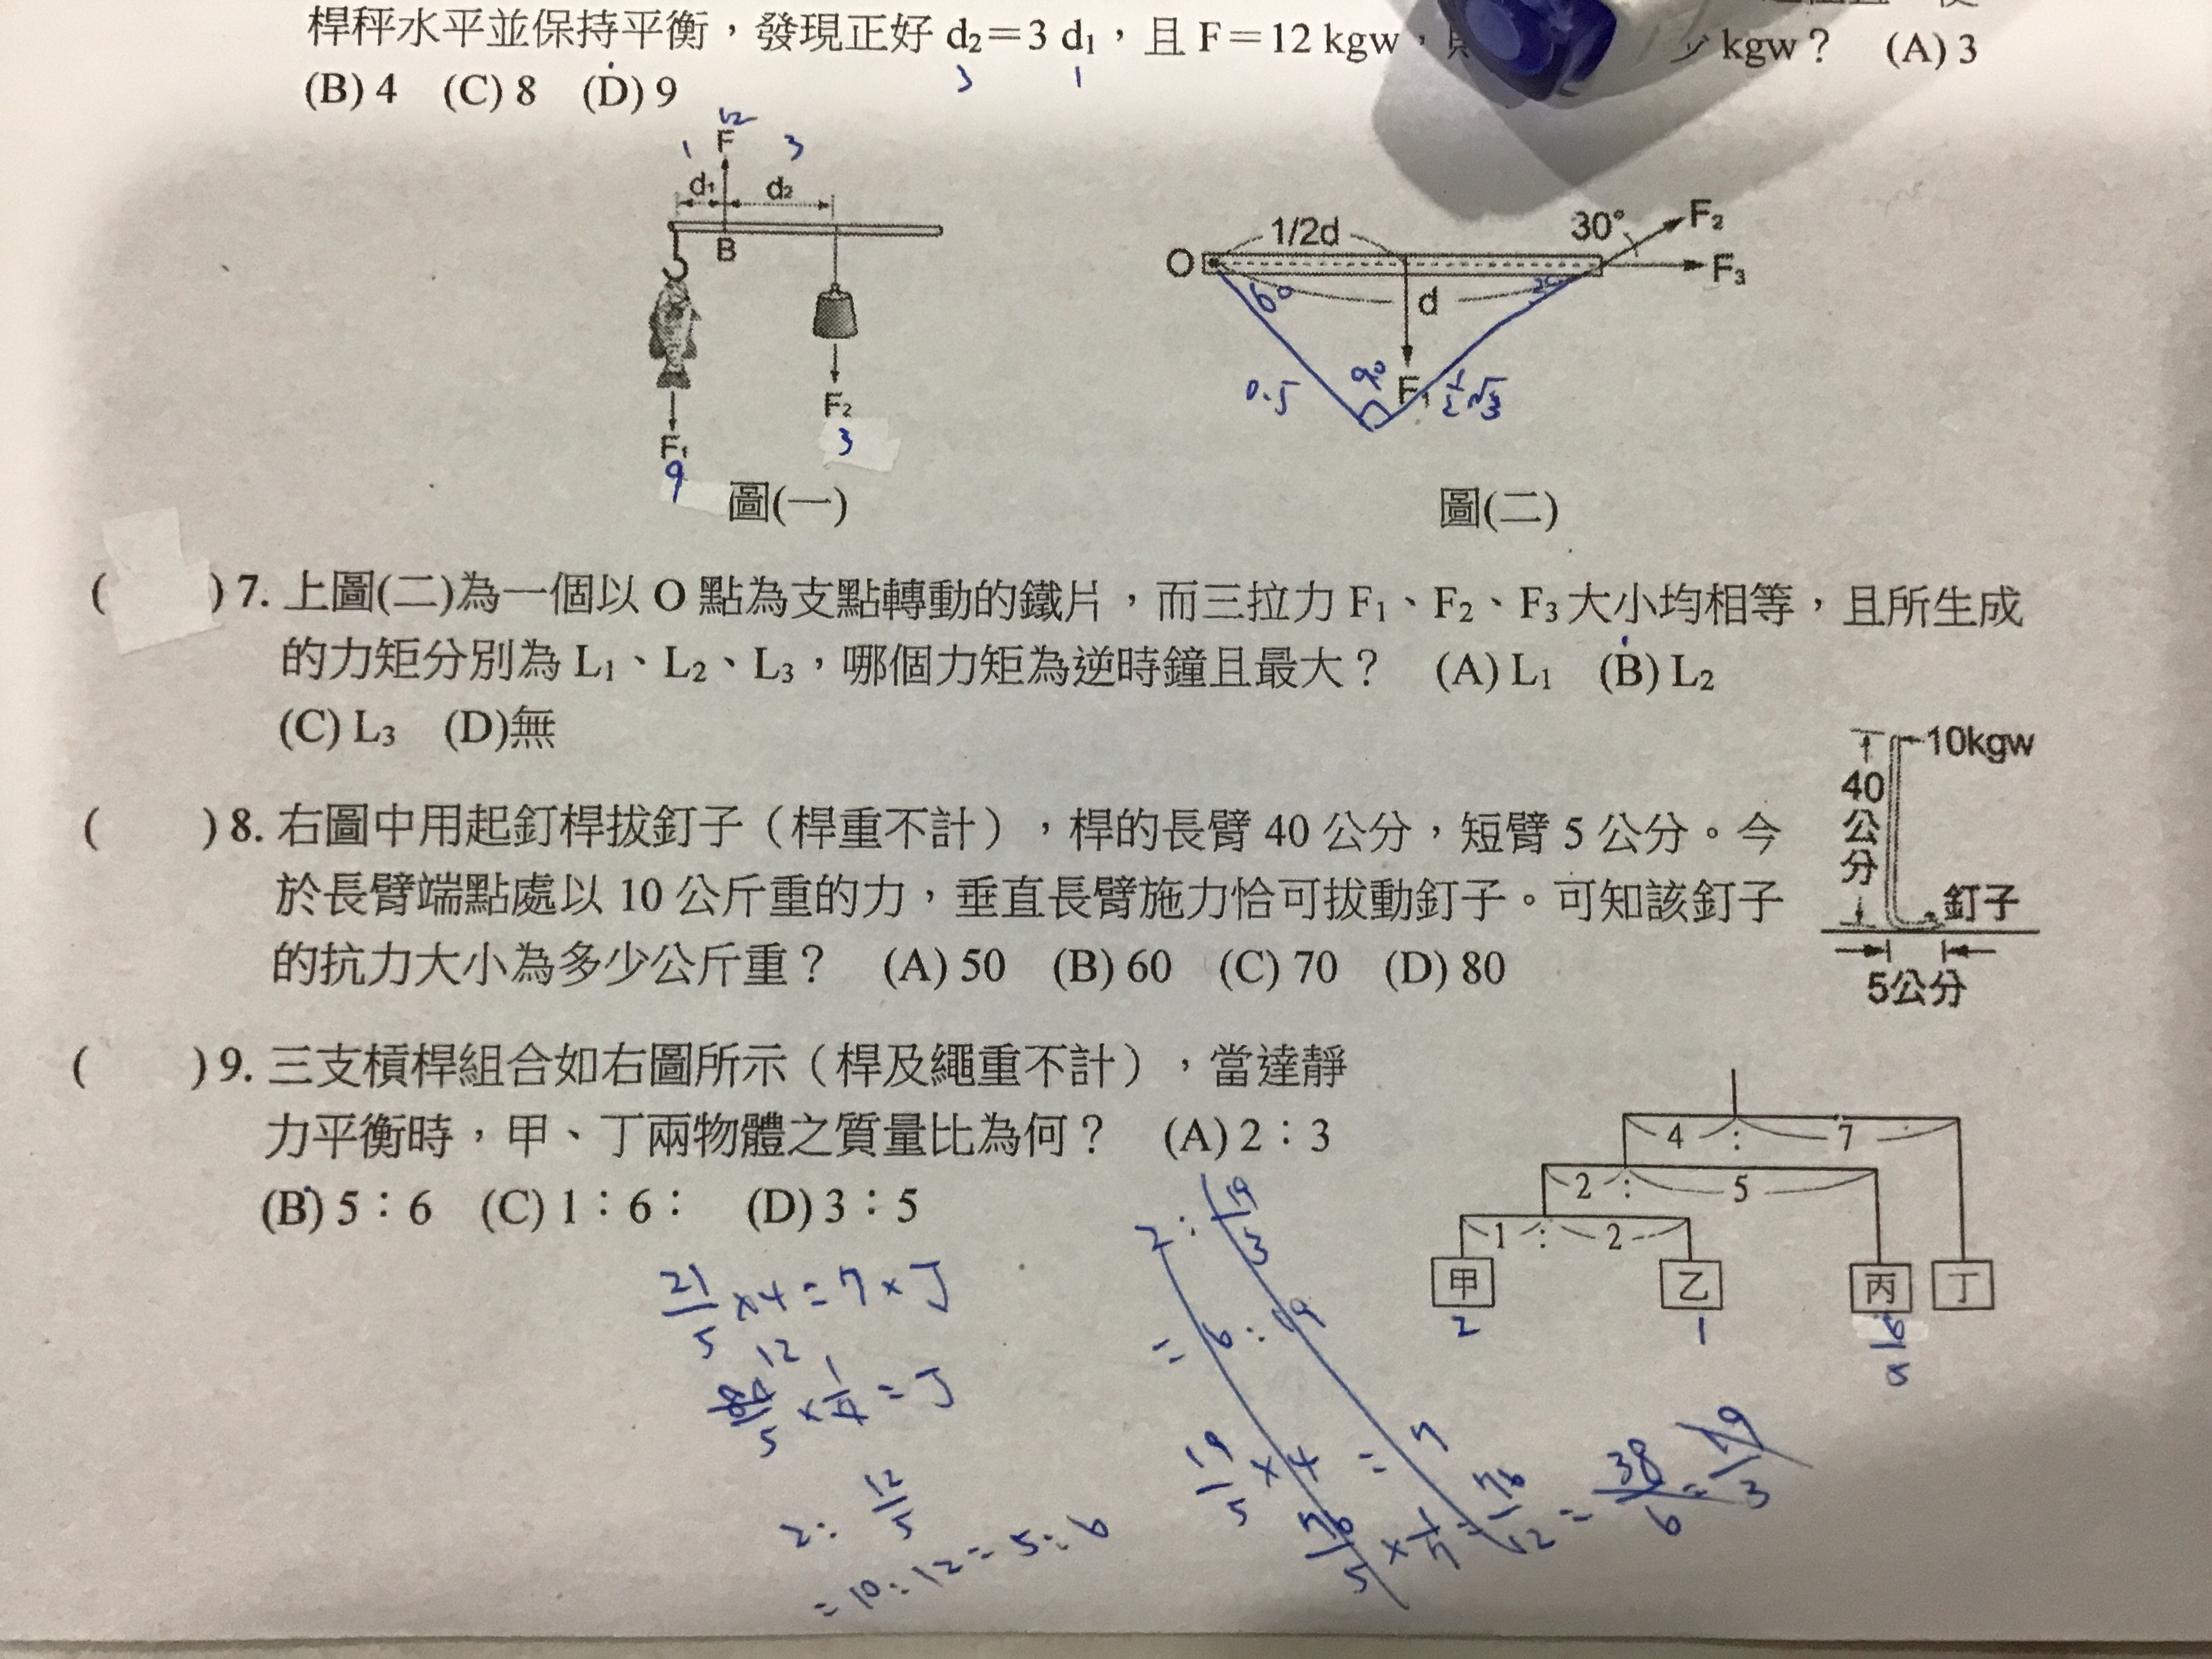 桿秤水平並保持平衡，發現正好 d₂＝3 d₁，且 F＝12 kgw，
kgw？ (A) 3
(B) 4 (C) 8 (D) 9
3 1
12
1 F 3
d₁ d₂
B
F₂
3
F₁
9
圖(一)
1/2d 30° F₂
O F₃
60 30
d
0.5 90 F₁ 1/2 √3
圖(二)
( ) 7. 上圖(二)為一個以 O 點為支點轉動的鐵片，而三拉力 F₁、F₂、F₃大小均相等，且所生成
的力矩分別為 L₁、L₂、L₃，哪個力矩為逆時鐘且最大？ (A) L₁ (B) L₂
(C) L₃ (D)無
( ) 8. 右圖中用起釘桿拔釘子（桿重不計），桿的長臂 40 公分，短臂 5 公分。今
於長臂端點處以 10 公斤重的力，垂直長臂施力恰可拔動釘子。可知該釘子
的抗力大小為多少公斤重？ (A) 50 (B) 60 (C) 70 (D) 80
10kgw
40
公
分
釘子
5公分
( ) 9. 三支槓桿組合如右圖所示（桿及繩重不計），當達靜
力平衡時，甲、丁兩物體之質量比為何？ (A) 2：3
(B) 5：6 (C) 1：6： (D) 3：5
4 : 7
2 : 5
1 : 2
甲 乙 丙 丁
2 1 6/5
21/5 ×4 = 7×丁
12
84/5 × 1/7 = 丁
2: 12/5
= 10:12 = 5:6
2 : 19/3
= 6 : 19
19/5 × 4 = 7
76/5 × 1/7 = 76/12 = 38/6 = 19/3